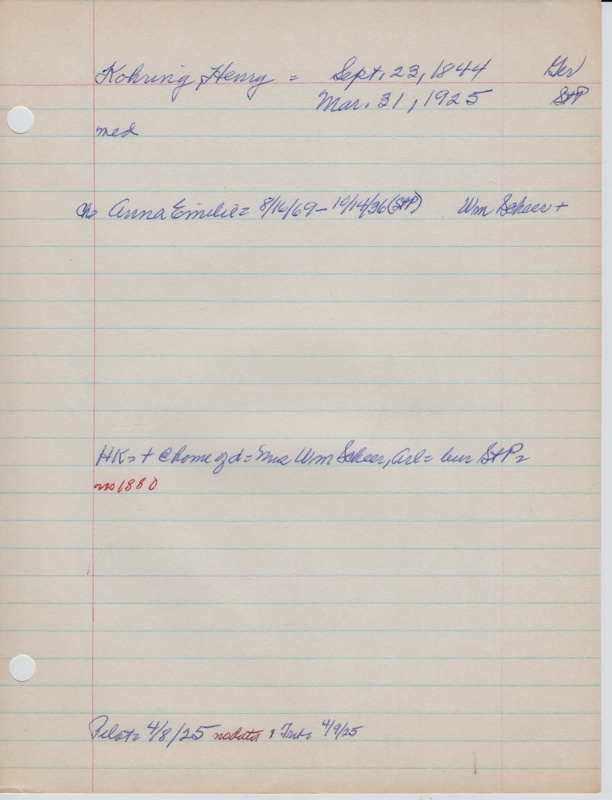 Kohring, Henry = Sept. 23, 1844 Ger
Mar. 31, 1925 StP
med
ch= Anna Emilie= 8/16/69 - 10/14/36 (StP) Wm Scheer +
HK= + @ home of d = Mrs Wm Scheer, Arl = bur StP=
no 1880
Pilot= 4/8/25 no data & Trib= 4/9/25